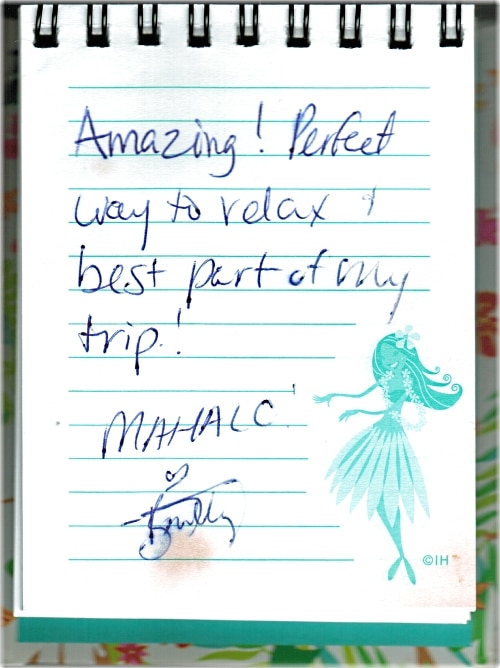 Amazing! Perfect
way to relax +
best part of my
trip!
MAHALO!
©IH